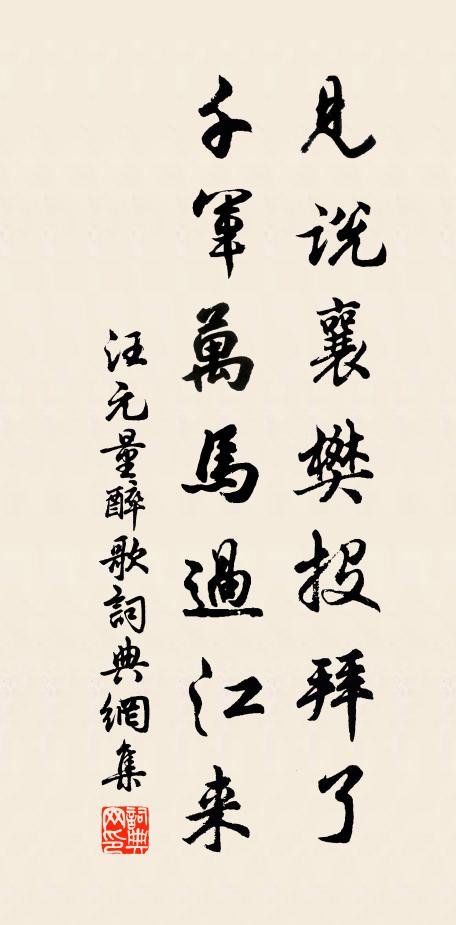 見說襄樊投拜了
千軍萬馬過江来
汪元量醉歌詞典網集
詞典网印